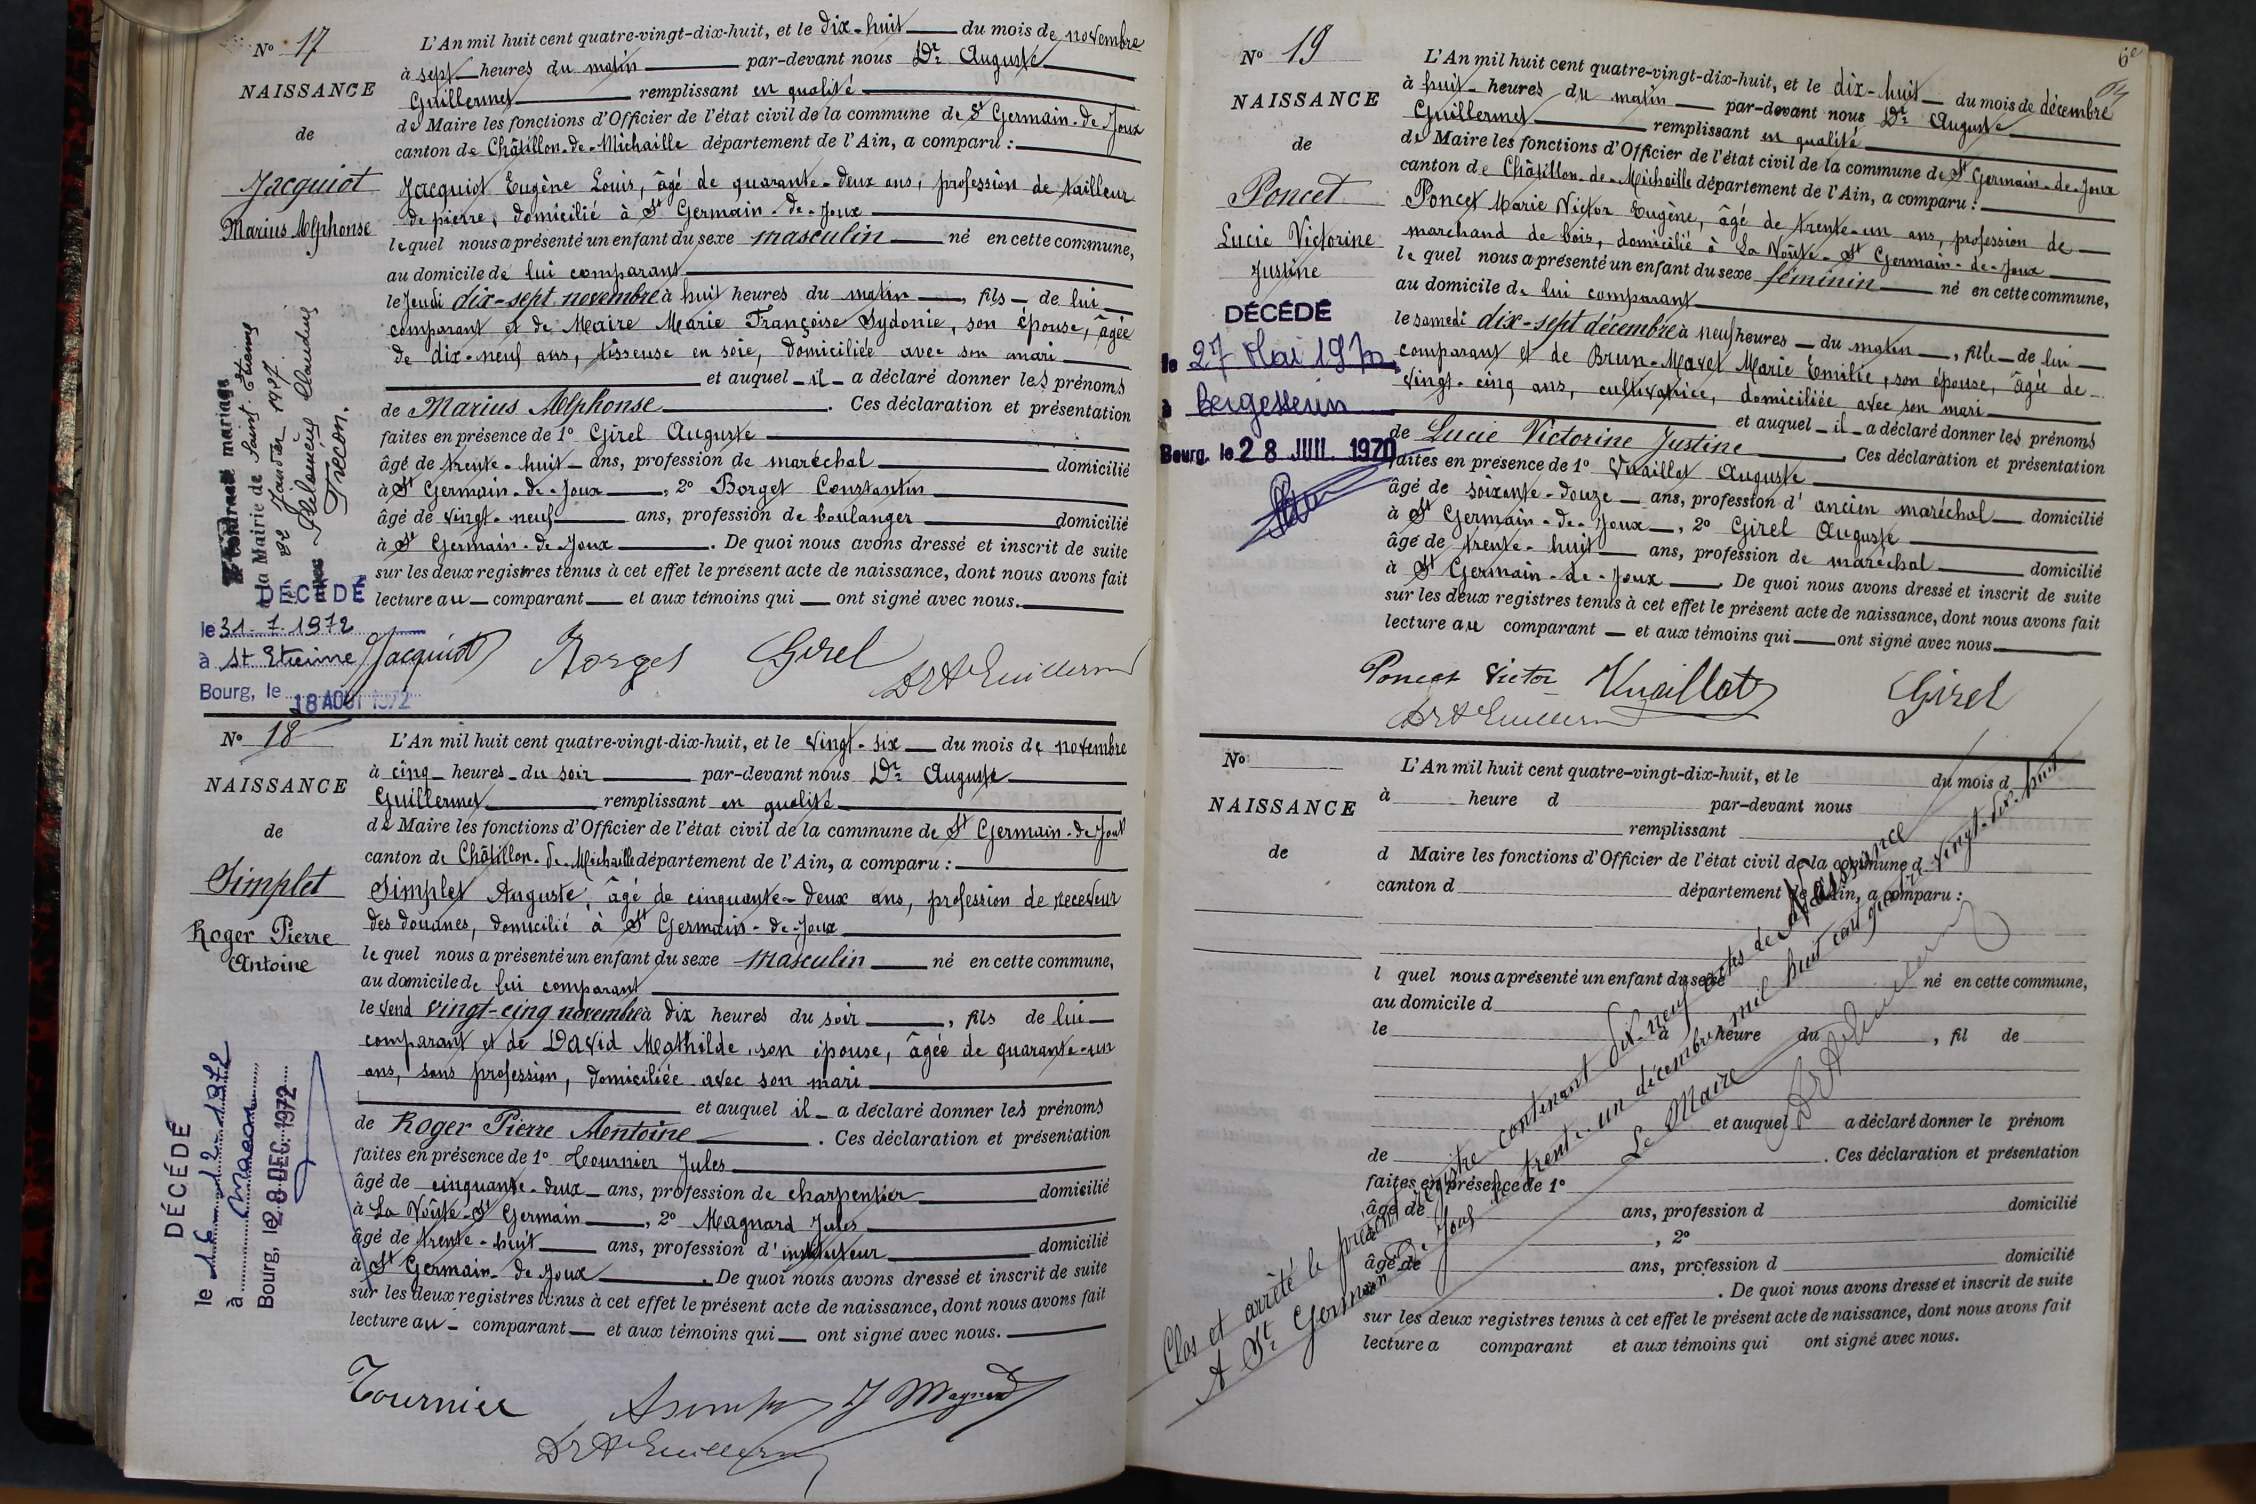 N° 17
NAISSANCE
de
Jacquiot
Marius Alphonse
L'An mil huit cent quatre-vingt-dix-huit, et le dix-huit du mois de novembre
à sept heures du matin par-devant nous Dr Auguste
Guillermet remplissant en qualité
de Maire les fonctions d'Officier de l'état civil de la commune de St Germain-de-Joux
canton de Châtillon-de-Michaille département de l'Ain, a comparu :
Jacquiot Eugène Louis, âgé de quarante-deux ans, profession de tailleur
de pierre, domicilié à St Germain-de-Joux
lequel nous a présenté un enfant du sexe masculin né en cette commune,
au domicile de lui comparant
le Jeudi dix-sept novembre à huit heures du matin, fils de lui
comparant et de Maire Marie Françoise Sydonie, son épouse, âgée
de dix-neuf ans, tisseuse en soie, domiciliée avec son mari
et auquel il a déclaré donner les prénoms
de Marius Alphonse. Ces déclaration et présentation
faites en présence de 1° Girel Auguste
âgé de trente-huit ans, profession de maréchal domicilié
à St Germain-de-Joux, 2° Borget Constantin
âgé de vingt-neuf ans, profession de boulanger domicilié
à St Germain-de-Joux. De quoi nous avons dressé et inscrit de suite
sur les deux registres tenus à cet effet le présent acte de naissance, dont nous avons fait
lecture au comparant et aux témoins qui ont signé avec nous.
contracté mariage
à la Mairie de Saint-Etienne
Janvier
Claudius
DÉCÉDÉ
le 31-7-1972
à St Etienne
Bourg, le 18 AOUT 1972
Jacquiot Borget Girel
Dr A Guillermet
N° 18
NAISSANCE
de
Simplet
Roger Pierre
Antoine
L'An mil huit cent quatre-vingt-dix-huit, et le vingt-six du mois de novembre
à cinq heures du soir par-devant nous Dr Auguste
Guillermet remplissant en qualité
de Maire les fonctions d'Officier de l'état civil de la commune de St Germain-de-Joux
canton de Châtillon-de-Michaille département de l'Ain, a comparu :
Simplet Auguste, âgé de cinquante-deux ans, profession de receveur
des douanes, domicilié à St Germain-de-Joux
le quel nous a présenté un enfant du sexe masculin né en cette commune,
au domicile de lui comparant
le vend vingt-cinq novembre à dix heures du soir, fils de lui
comparant et de David Mathilde, son épouse, âgée de quarante-un
ans, sans profession, domiciliée avec son mari
et auquel il a déclaré donner les prénoms
de Roger Pierre Antoine. Ces déclaration et présentation
faites en présence de 1° Tournier Jules
âgé de cinquante-deux ans, profession de charpentier domicilié
à La Voûte-St Germain, 2° Magnard Jules
âgé de trente-huit ans, profession d'instituteur domicilié
à St Germain-de-Joux. De quoi nous avons dressé et inscrit de suite
sur les deux registres tenus à cet effet le présent acte de naissance, dont nous avons fait
lecture au comparant et aux témoins qui ont signé avec nous.
DÉCÉDÉ
le 16 12 1972
à Macon
Bourg, le 28 DEC. 1972
Tournier J Magnard
Dr A Guillermet
N° 19
NAISSANCE
de
Poncet
Lucie Victorine
Justine
L'An mil huit cent quatre-vingt-dix-huit, et le dix-huit du mois de décembre
à huit heures du matin par-devant nous Dr Auguste
Guillermet remplissant en qualité
de Maire les fonctions d'Officier de l'état civil de la commune de St Germain-de-Joux
canton de Châtillon-de-Michaille département de l'Ain, a comparu :
Poncet Marie Victor Eugène, âgé de trente-un ans, profession de
marchand de bois, domicilié à La Voûte-St Germain-de-Joux
le quel nous a présenté un enfant du sexe féminin né en cette commune,
au domicile de lui comparant
le samedi dix-sept décembre à neuf heures du matin, fille de lui
comparant et de Brun-Mavet Marie Emilie, son épouse, âgée de
vingt-cinq ans, cultivatrice, domiciliée avec son mari
et auquel il a déclaré donner les prénoms
de Lucie Victorine Justine. Ces déclaration et présentation
faites en présence de 1° Vuaillat Auguste
âgé de soixante-douze ans, profession d'ancien maréchal domicilié
à St Germain-de-Joux, 2° Girel Auguste
âgé de trente-huit ans, profession de maréchal domicilié
à St Germain-de-Joux. De quoi nous avons dressé et inscrit de suite
sur les deux registres tenus à cet effet le présent acte de naissance, dont nous avons fait
lecture au comparant et aux témoins qui ont signé avec nous
DÉCÉDÉ
le 27 Mai 1970
à Bergesserin
Bourg, le 28 JUIL 1970
Poncet Victor Vuaillat Girel
Dr A Guillermet
N°
NAISSANCE
de
L'An mil huit cent quatre-vingt-dix-huit, et le du mois d
à heure d par-devant nous
remplissant
d Maire les fonctions d'Officier de l'état civil de la commune d
canton d département de l'Ain, a comparu :
l quel nous a présenté un enfant du sexe né en cette commune,
au domicile d
le à heure du , fil de
et auquel a déclaré donner le prénom
de . Ces déclaration et présentation
faites en présence de 1°
âgé de ans, profession d domicilié
à , 2°
âgé de ans, profession d domicilié
à . De quoi nous avons dressé et inscrit de suite
sur les deux registres tenus à cet effet le présent acte de naissance, dont nous avons fait
lecture a comparant et aux témoins qui ont signé avec nous.
Clos et arrêté le présent registre contenant dix-neuf actes de Naissance
A St Germain-de-Joux le trente-un décembre mil huit cent quatre vingt-dix-huit
Le Maire
Dr A Guillermet